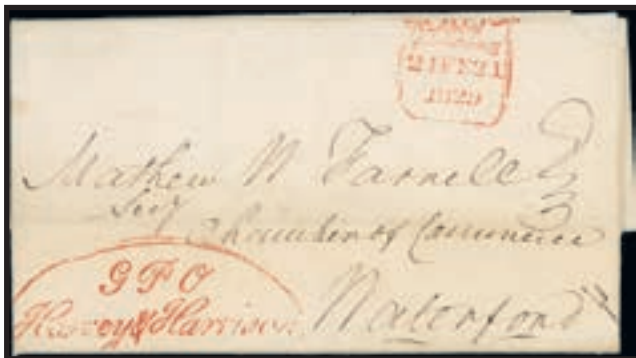 1829
Mathew N Farrell Esq
Secy
Chamber of Commerce
Waterford
G P O
Harvey & Harrison